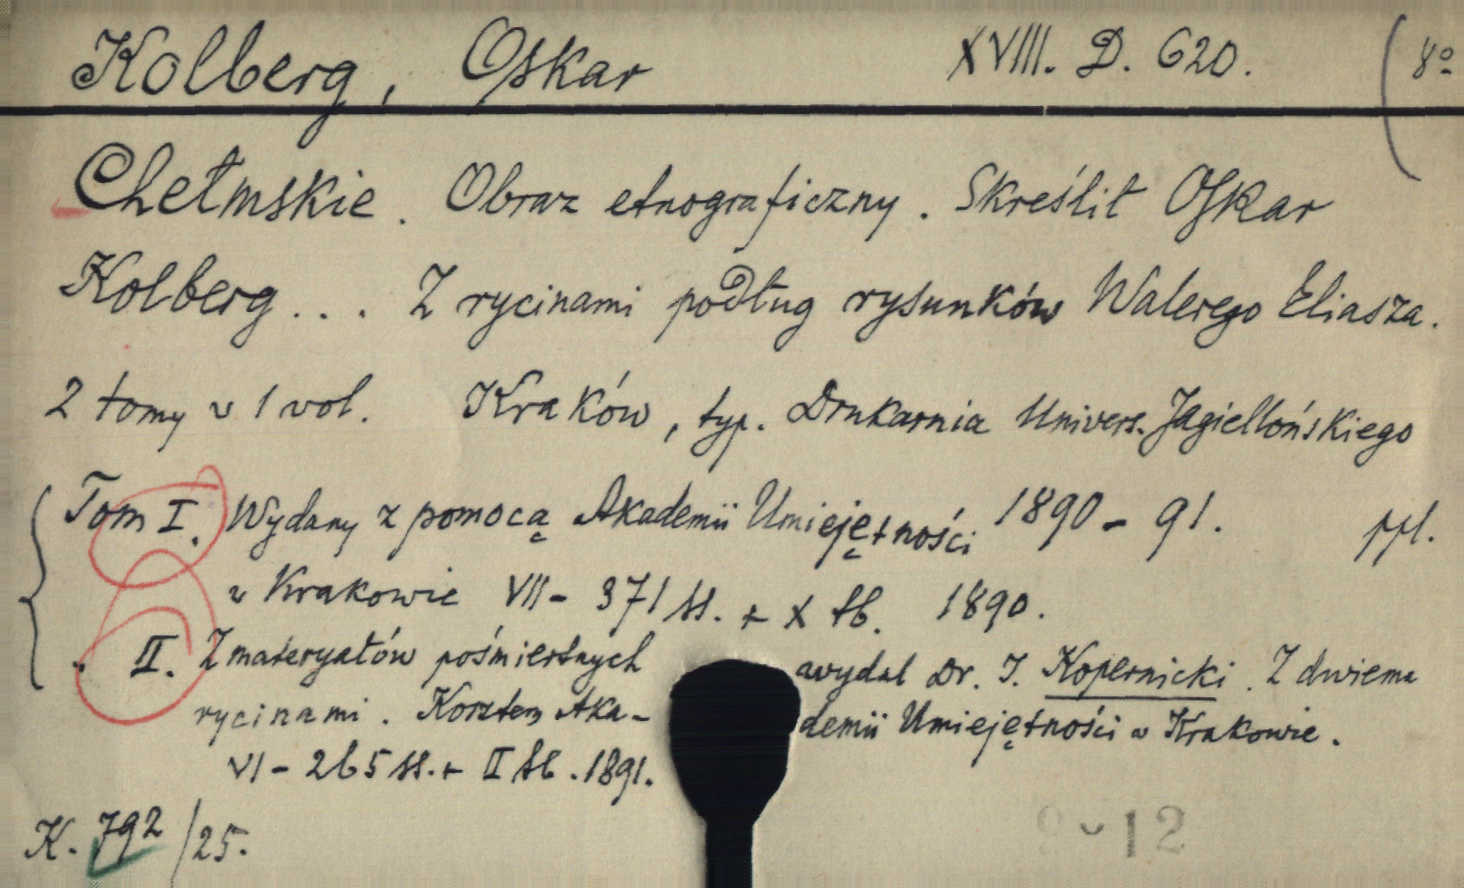 Kolberg, Oskar XVIII. D. 620. (8º
Chełmskie. Obraz etnograficzny. Skreślił Oskar
Kolberg... Z rycinami podług rysunków Walerego Eliasza.
2 tomy w 1 vol. Kraków, typ. Drukarnia Univers. Jagiellońskiego
Tom I. Wydany z pomocą Akademii Umiejętności 1890-91. ppł.
w Krakowie VII-371 ss. + X tb. 1890.
" II. Z materyałów pośmiertnych wydał Dr. I. Kopernicki. Z dwiema
rycinami. Kosztem Akademii Umiejętności w Krakowie.
VI-265 ss. + II tb. 1891.
K. 792/25.
12